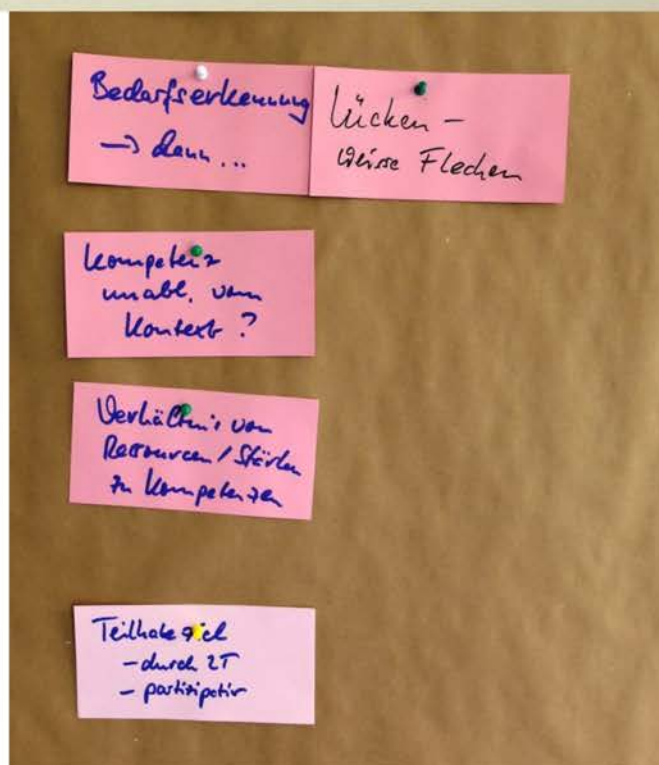 Bedarfserkennung
→ dann ...
Lücken –
weisse Flecken
Kompetenz
unabh. vom
Kontext ?
Verhältnis von
Ressourcen / Stärken
zu Kompetenzen
Teilhabeziel
– durch LT
– partizipativ